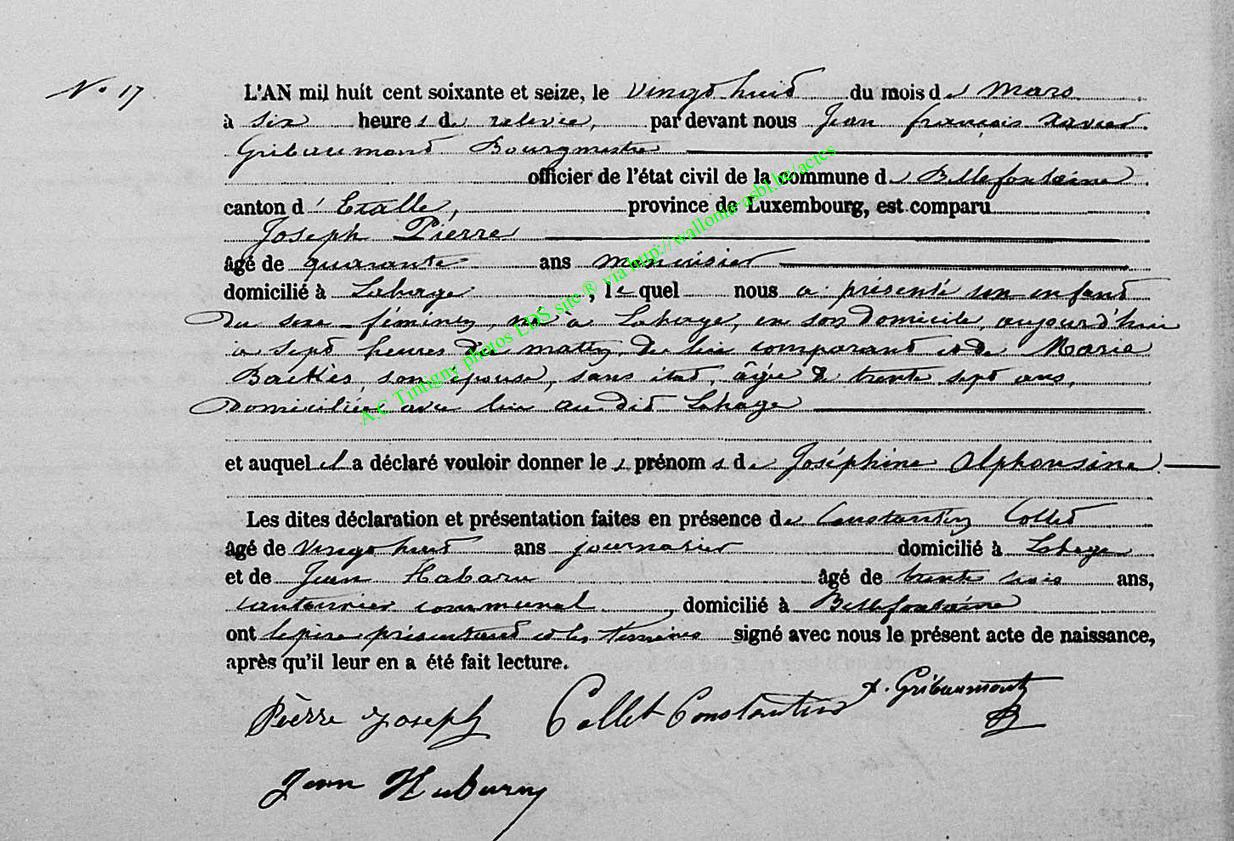 N° 17
L'AN mil huit cent soixante et seize, le vingt huit du mois de Mars
à six heures de relevée, par devant nous Jean françois Xavier
Gribaumont Bourgmestre
officier de l'état civil de la commune de Bellefontaine
canton d'Etalle, province de Luxembourg, est comparu
Joseph Pierre
âgé de quarante ans menuisier
domicilié à Lahage, lequel nous a présenté un enfant
du sexe féminin, né à Lahage, en son domicile, aujourd'hui
à sept heures du matin, de lui comparant et de Marie
Backès, son épouse, sans état, âgée de trente sept ans,
domiciliée avec lui au dit Lahage
et auquel il a déclaré vouloir donner les prénoms de Joséphine Alphonsine
Les dites déclaration et présentation faites en présence de Constantin Collet
âgé de vingt huit ans journalier domicilié à Lahage
et de Jean Habaru âgé de trente trois ans,
cantonnier communal, domicilié à Bellefontaine
ont le père présentant et les témoins signé avec nous le présent acte de naissance,
après qu'il leur en a été fait lecture.
Pièrre Joseph Collet Constantin X. Gribaumont
Jean Habaru
A.C Tintigny photos LDS site ® via http://wallonia-asbl.be/actes